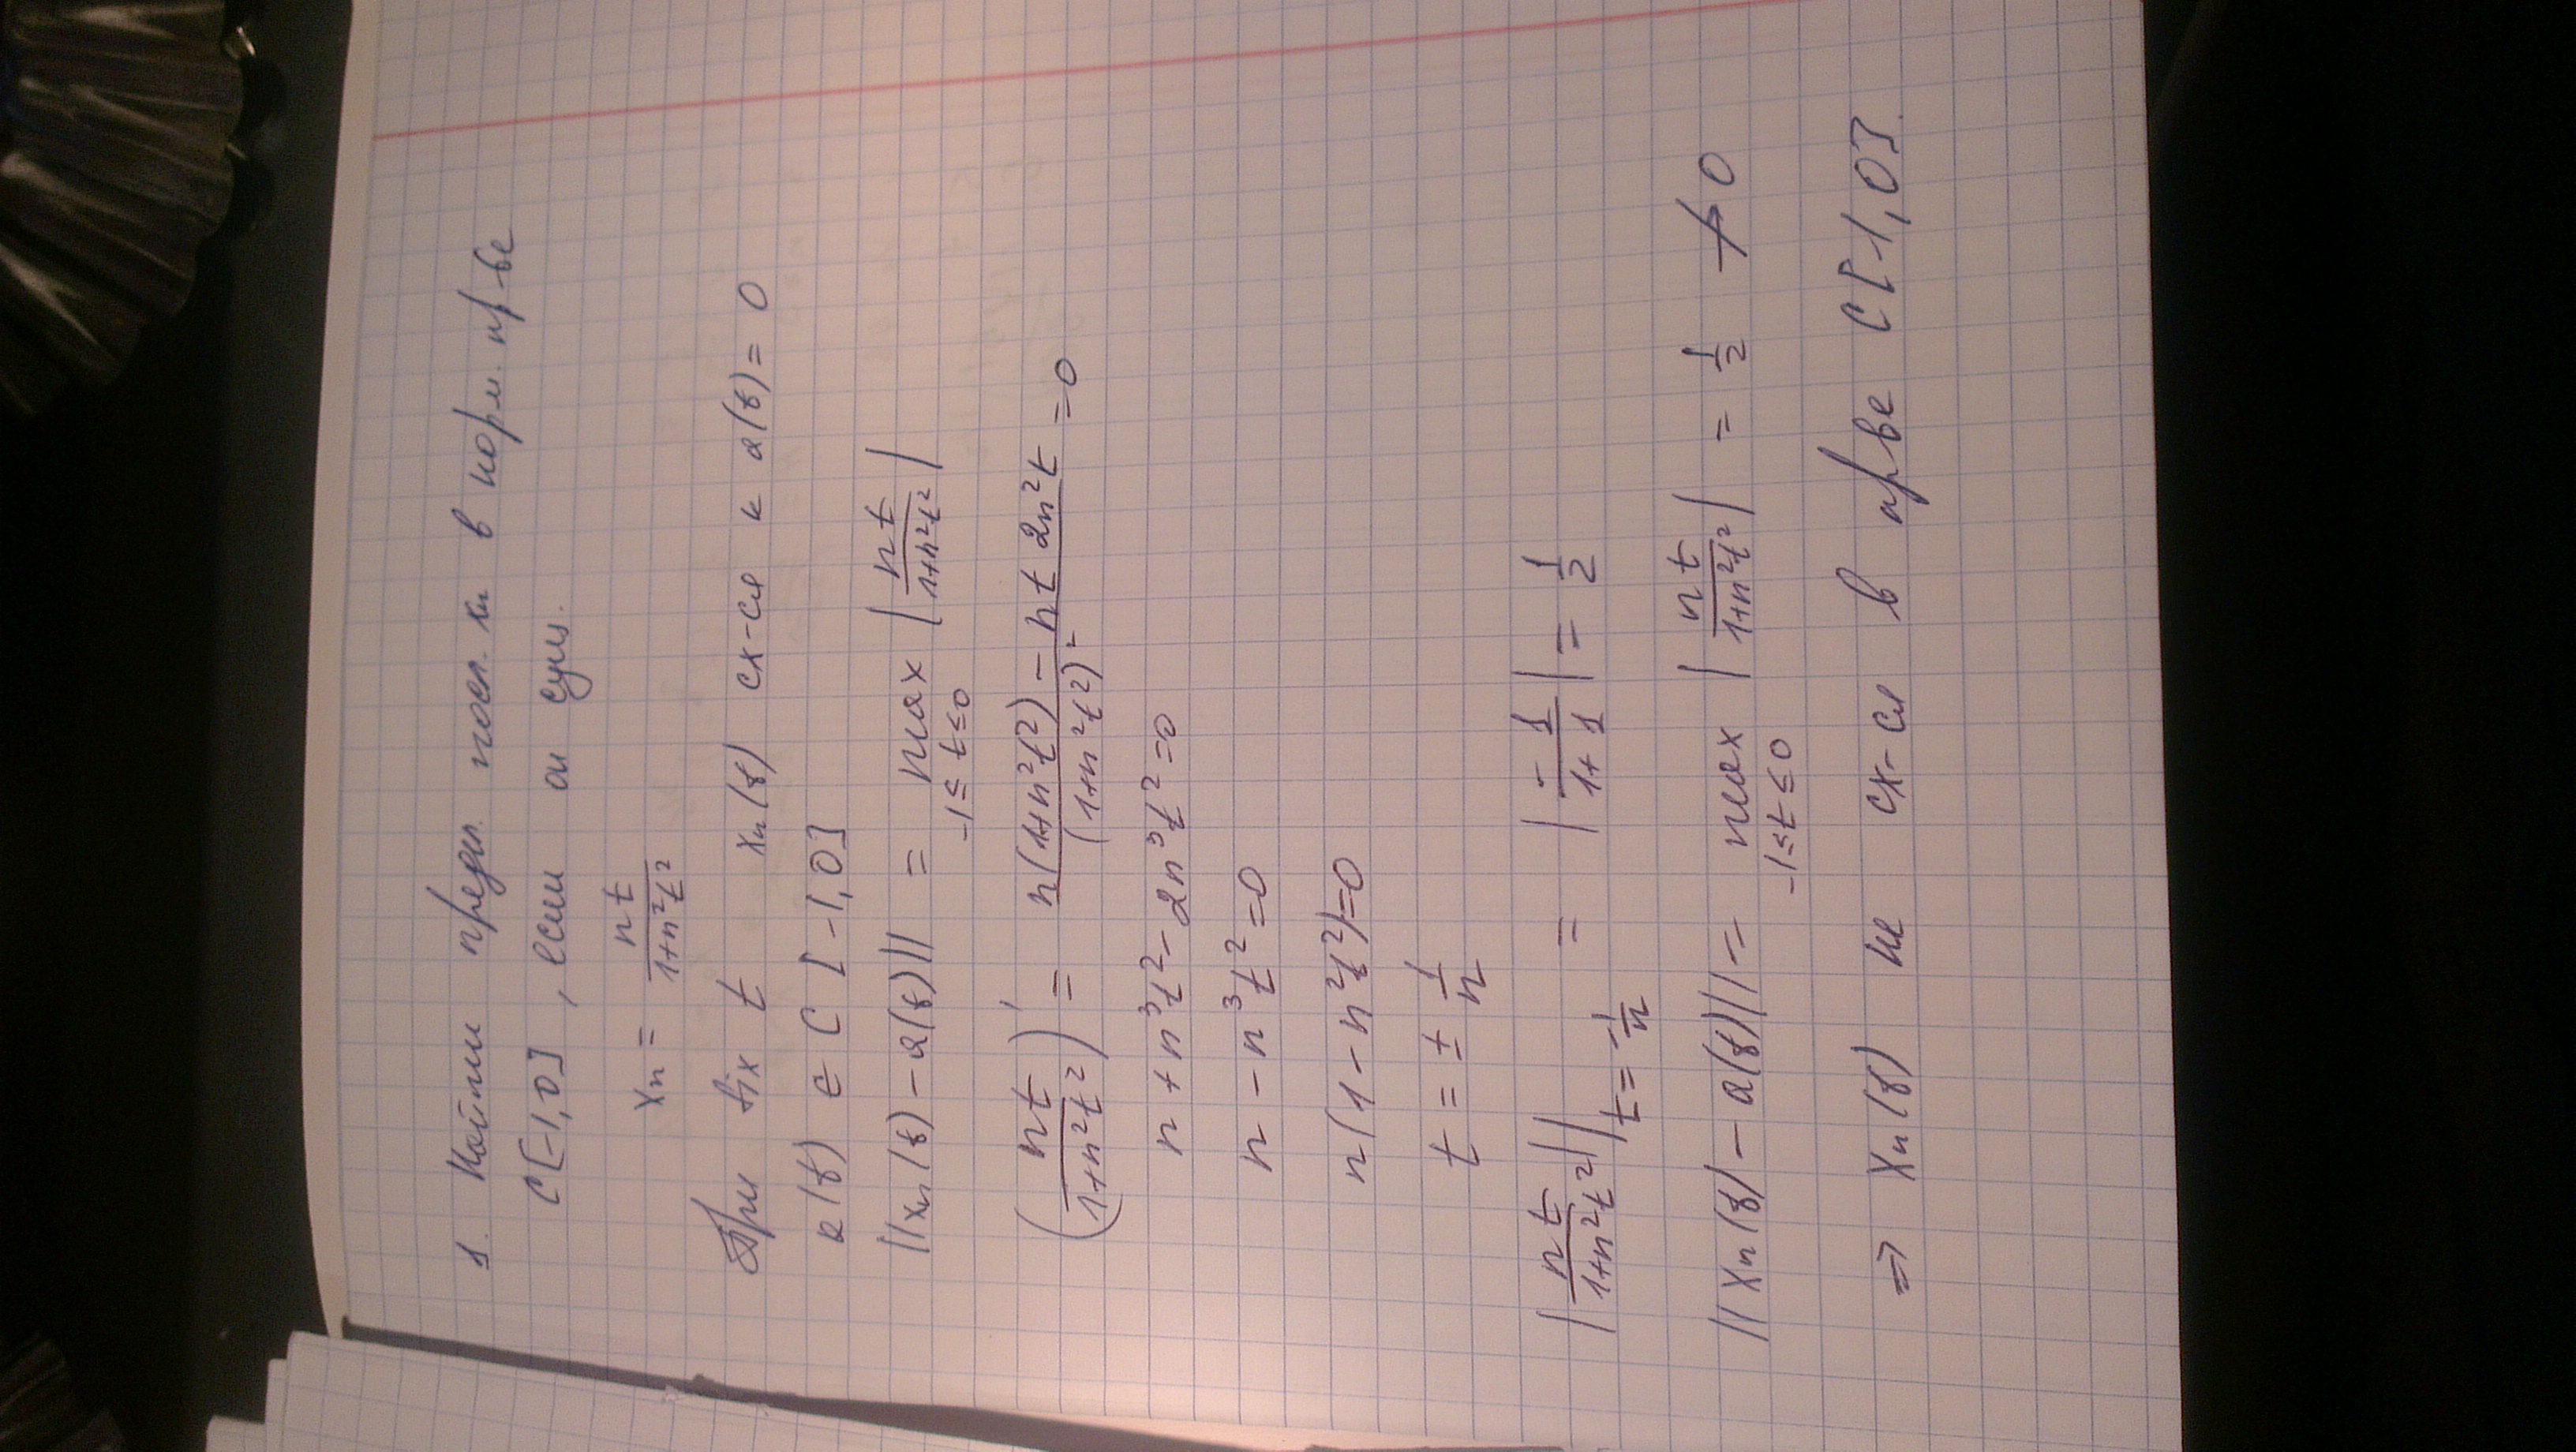 1. Найти предел посл. xn в норм. пр-ве
C[-1,0], если он сущ.
xn = nt/(1+n²t²)
При fix t xn(t) сх-ся к a(t)=0
a(t) ∈ C[-1,0]
||xn(t) - a(t)|| = max -1≤t≤0 |nt/(1+n²t²)|
(nt/(1+n²t²))' = (n(1+n²t²) - nt 2n²t)/(1+n²t²)² = 0
n + n³t² - 2n³t² = 0
n - n³t² = 0
n(1 - n²t²) = 0
t = ± 1/n
|nt/(1+n²t²)| |t=-1/n = |-1/(1+1)| = 1/2
||xn(t) - a(t)|| = max -1≤t≤0 |nt/(1+n²t²)| = 1/2 ↛ 0
⇒ xn(t) не сх-ся в пр-ве C[-1,0].